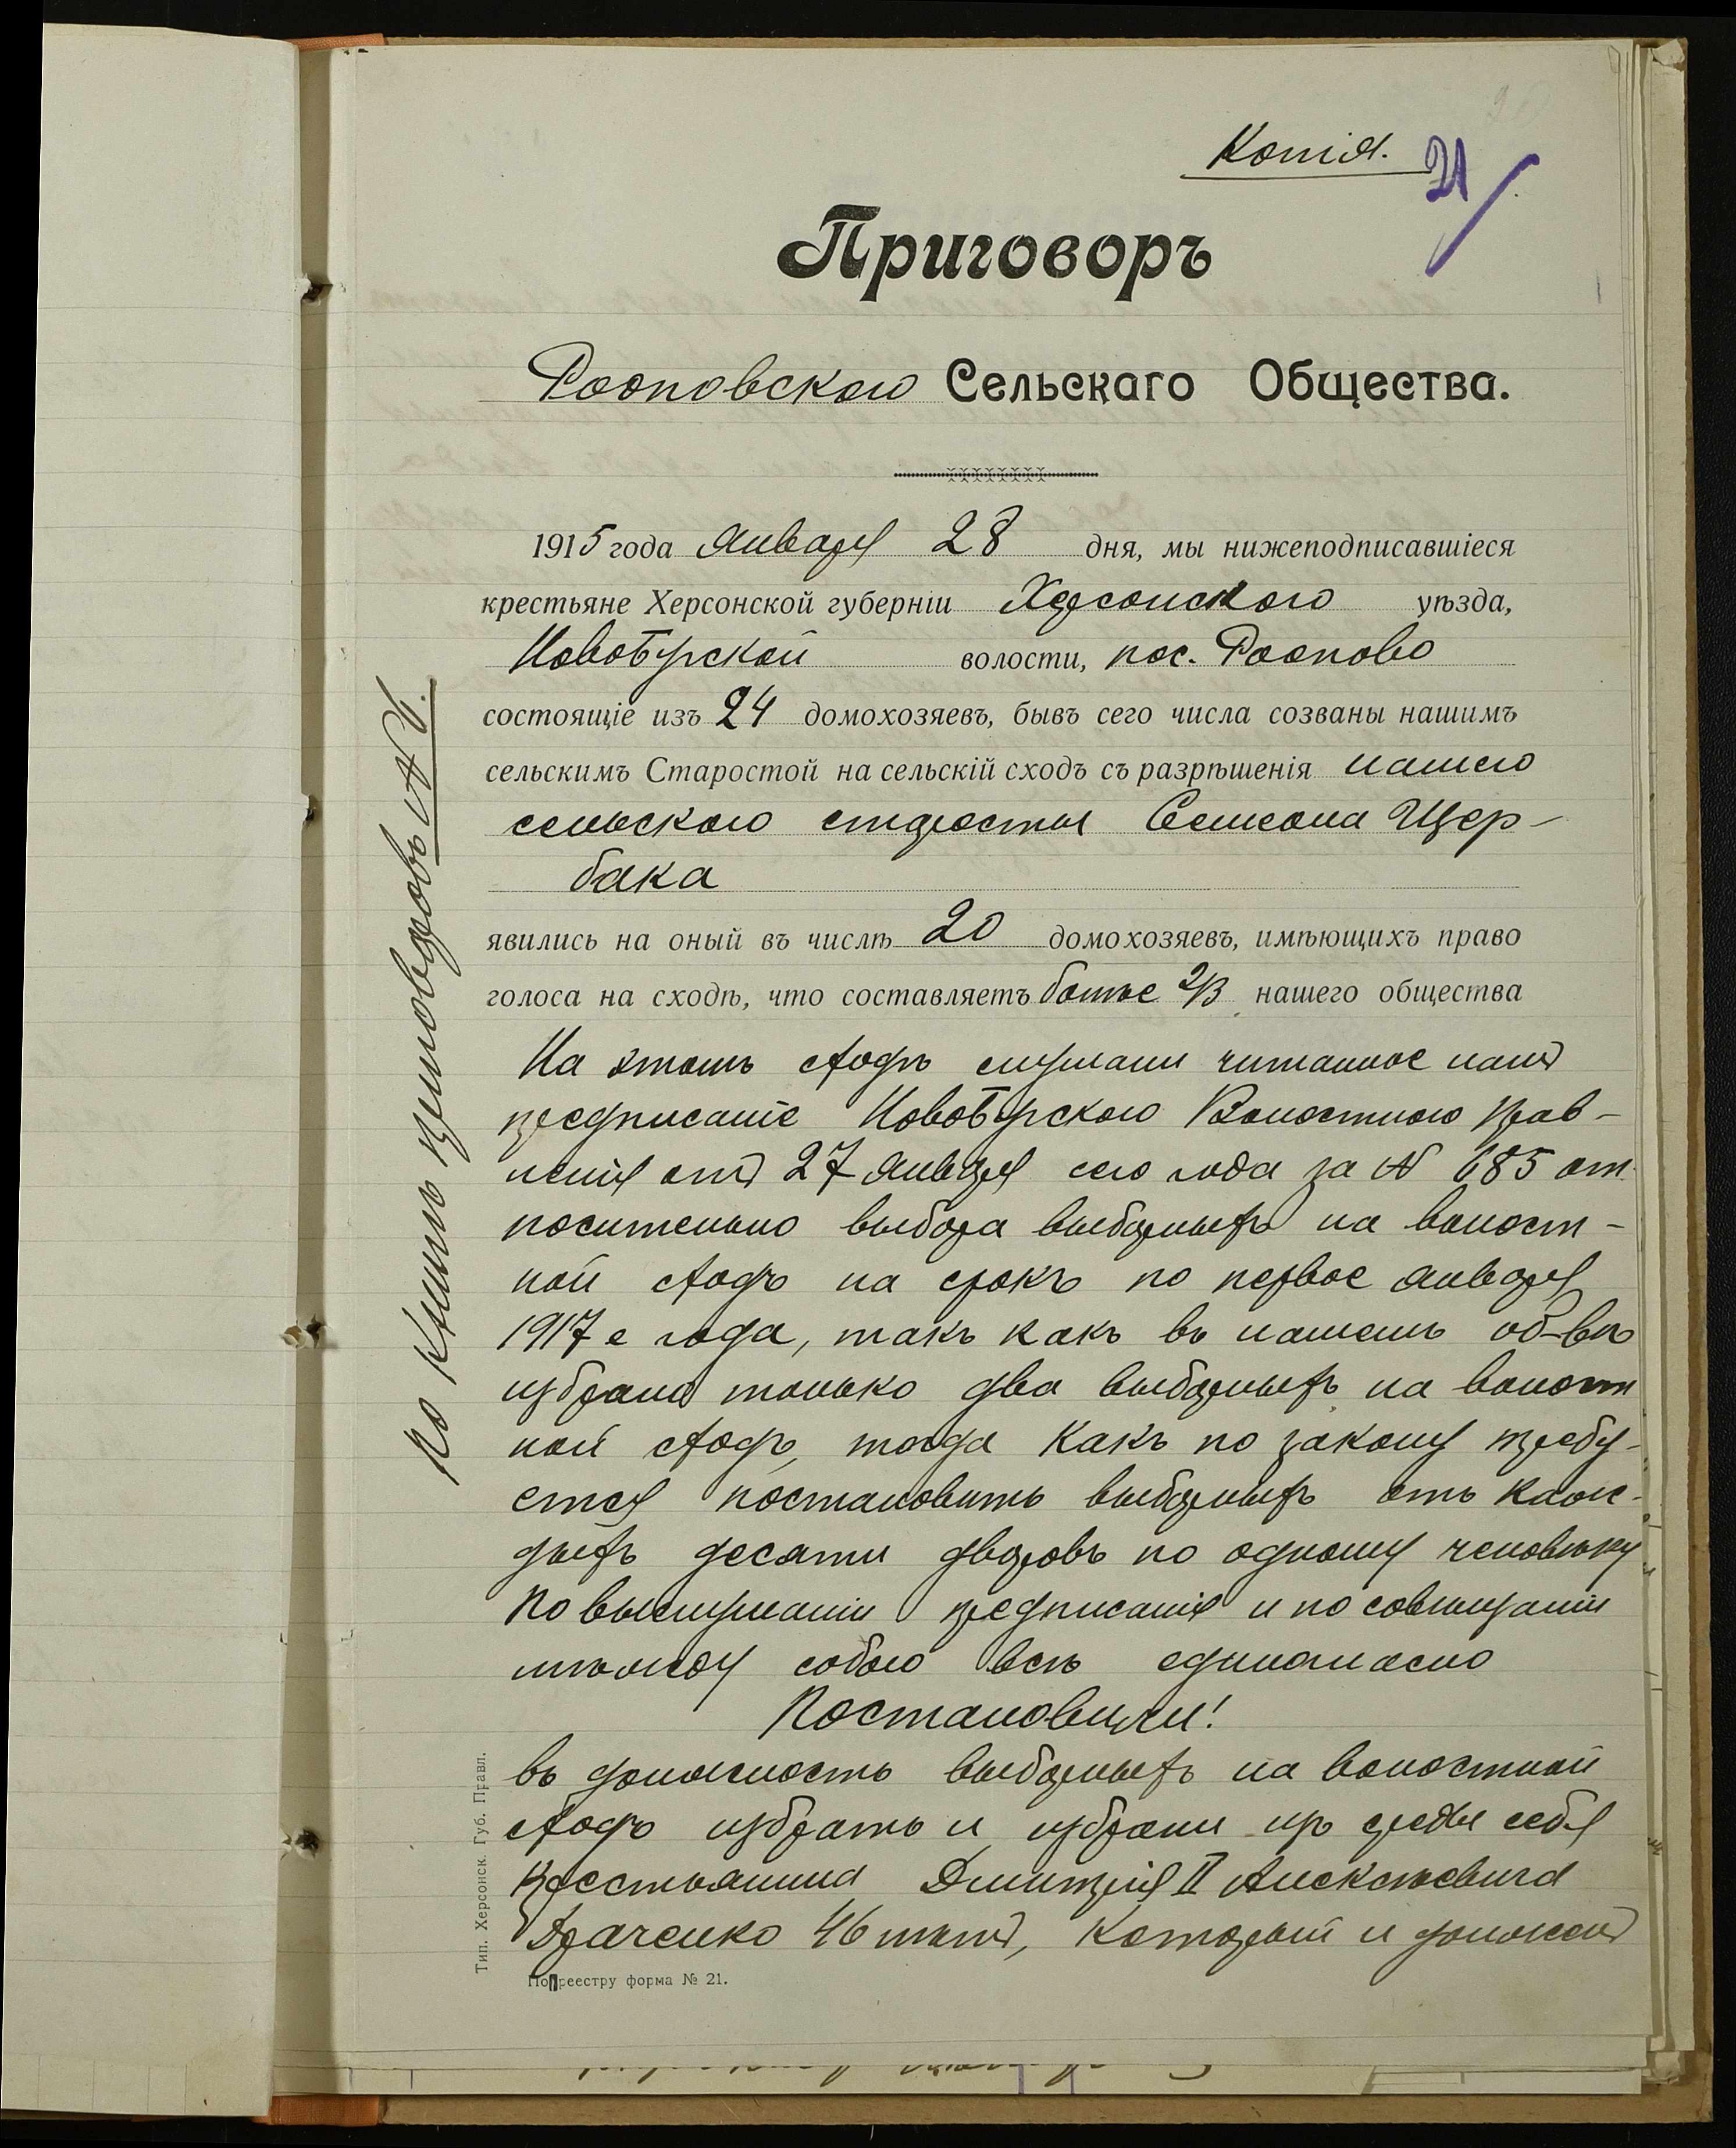 Копія.
21
Приговоръ
Рооповскаго Сельскаго Общества.
1915 года Января 28 дня, мы нижеподписавшіеся
крестьяне Херсонской губерніи Херсонскаго уѣзда,
Новобугской волости, пос. Роопово
состоящіе изъ 24 домохозяевъ, бывъ сего числа созваны нашимъ
сельскимъ Старостой на сельскій сходъ съ разрѣшенія нашего
сельскаго старосты Семеона Щер-
бака
явились на оный въ числѣ 20 домохозяевъ, имѣющихъ право
голоса на сходѣ, что составляетъ болѣе 2/3 нашего общества
На этомъ сходѣ слушали читанное намъ
предписаніе Новобугскаго Волостного Прав-
ленія отъ 27 Января сего года за № 685 от
носительно выбора выборныхъ на волост-
ной сходъ на срокъ по первое января
1917 е года, такъ какъ въ нашемъ об-вѣ
избрано только два выборныхъ на волост
ной сходъ, тогда какъ по закону требу-
ется постановить выборныхъ отъ каж-
дыхъ десяти дворовъ по одному человѣку
По выслушаніи предписанія и по совѣщаніи
между собою всѣ единогласно
Постановили!
въ должность выборныхъ на волостной
сходъ избрать и избрали изъ среды себя
крестьянина Дмитрія II Алексѣевича
Драченко 46 лѣтъ, который и долженъ
По реестру форма № 21.
Тип. Херсонск. Губ. Правл.
По книгѣ приговоровъ № 6.